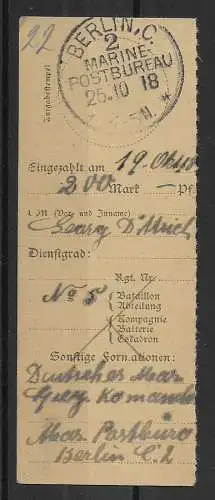 22
BERLIN, C.
2
MARINE-
POSTBUREAU
25.10 18
Aufgabestempel
Eingezahlt am 19. Okt 18
200 Mark — Pf.
(Vor- und Zuname)
Georg
Dienstgrad:
Rgt. Nr.
No 5 Bataillon
Abteilung
Kompagnie
Batterie
Eskadron
Sonstige Formationen:
Deutsches Mar.
Komando
Mar Postbüro
Berlin C 2